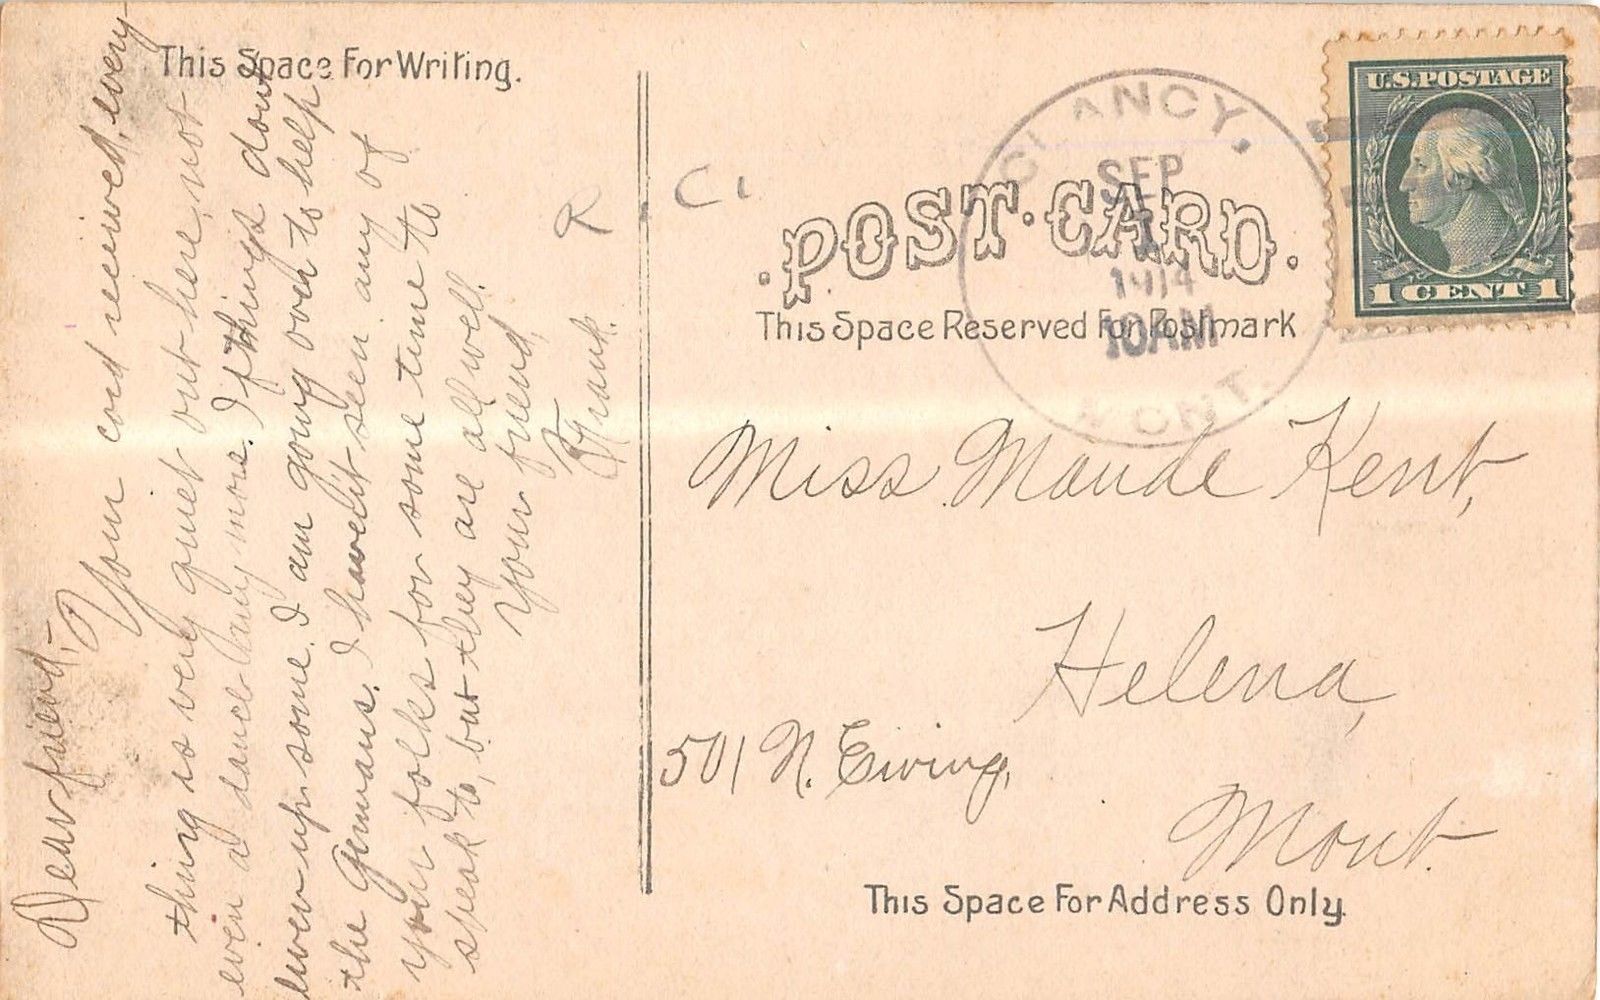 This Space For Writing.
Dear friend,-
Your card received, every-
thing is very quiet out here, not
even a dance any more. If things dont
liven up some I am going over to help
the Germans. I havent seen any of
your folks for some time to
speak to, but they are all well.
Your friend,
Frank.
R
C
CLANCY,
SEP
1
1914
10 AM
MONT.
U.S. POSTAGE
1 CENT 1
POST CARD.
This Space Reserved For Postmark
Miss Maude Kent,
Helena,
501 N. Ewing,
Mont.
This Space For Address Only.